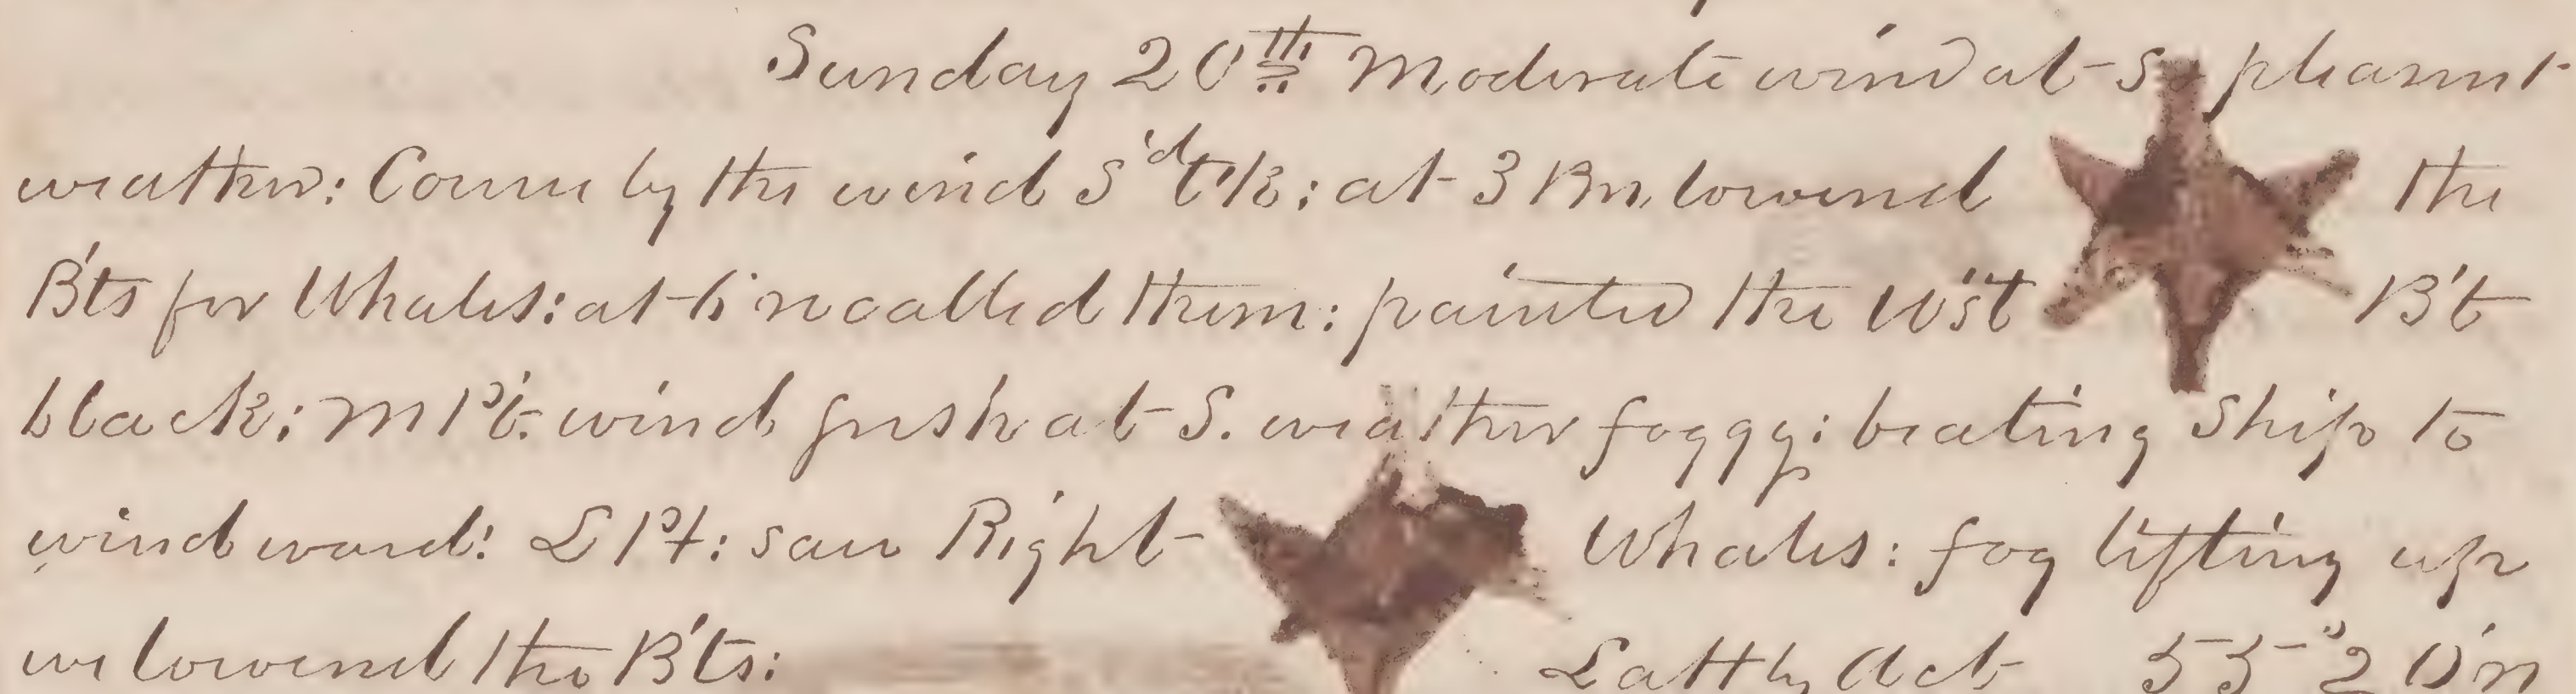 Sunday 20th Moderate wind at S. pleasant
weather: Course by the wind S'd t'k: at 3 Pm, lowered the
B'ts for Whales: at 6 recalled them: painted the W'st B't
black: M P't. wind fresh at S. weather foggy: beating Ship to
windward: L P't: saw Right Whales: fog lifting up
we lowered the B'ts: Latt by Act 55°20'n